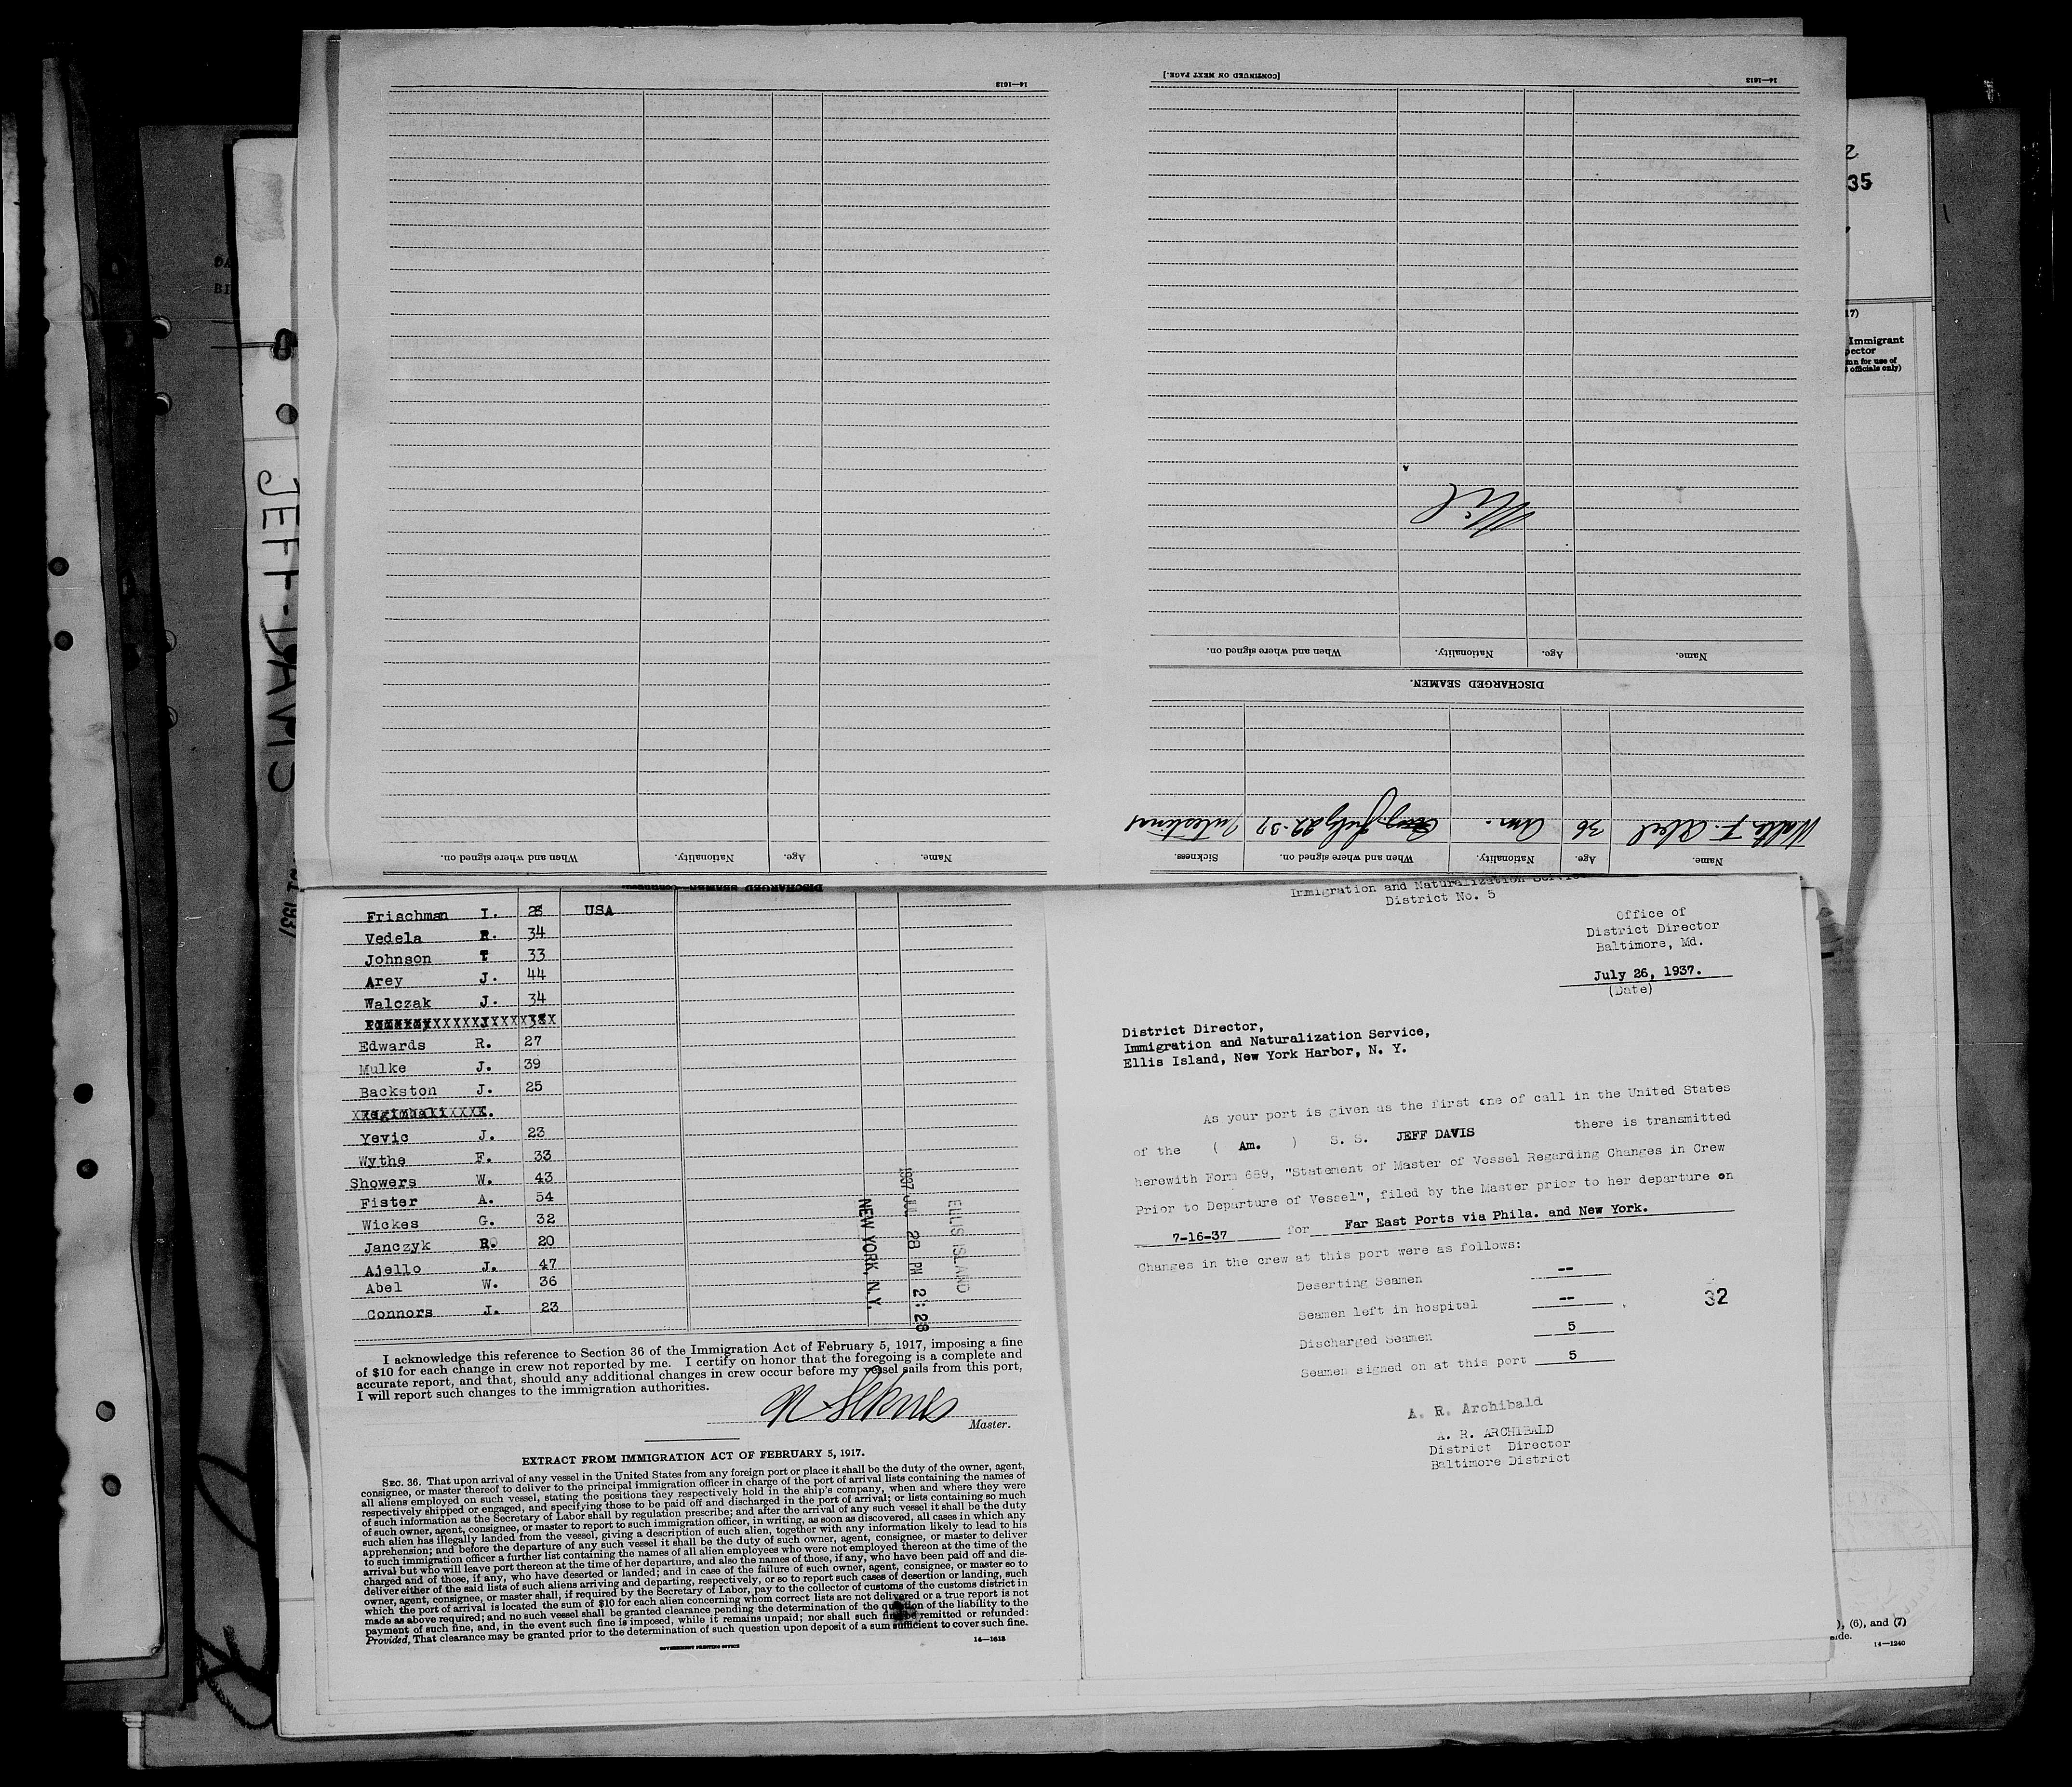 14—1613
[CONTINUED ON NEXT PAGE.]
14—1613
Nil
When and where signed on.
Nationality.
Age.
Name.
DISCHARGED SEAMEN.
Walter F. Abel 36 Am. July 22-37
Name.
Age.
Nationality.
When and where signed on.
Sickness.
Name.
Age.
Nationality.
When and where signed on.
DISCHARGED SEAMEN—Continued.
35
17)
Immigrant
officials only)
JEFF-DAVIS
1937
Frischman I. 28 USA
Vedela R. 34
Johnson T 33
Arey J. 44
Walczak J. 34
Edwards R. 27
Mulke J. 39
Backston J. 25
Yevic J. 23
Wythe F. 33
Showers W. 43
Fister A. 54
Wickes G. 32
Janczyk R. 20
Ajello J. 47
Abel W. 36
Connors J. 23
ELLIS ISLAND
1937 JUL 28 PM 2:28
NEW YORK, N.Y.
I acknowledge this reference to Section 36 of the Immigration Act of February 5, 1917, imposing a fine
of $10 for each change in crew not reported by me. I certify on honor that the foregoing is a complete and
accurate report, and that, should any additional changes in crew occur before my vessel sails from this port,
I will report such changes to the immigration authorities.
Master.
EXTRACT FROM IMMIGRATION ACT OF FEBRUARY 5, 1917.
SEC. 36. That upon arrival of any vessel in the United States from any foreign port or place it shall be the duty of the owner, agent,
consignee, or master thereof to deliver to the principal immigration officer in charge of the port of arrival lists containing the names of
all aliens employed on such vessel, stating the positions they respectively hold in the ship's company, when and where they were
respectively shipped or engaged, and specifying those to be paid off and discharged in the port of arrival; or lists containing so much
of such information as the Secretary of Labor shall by regulation prescribe; and after the arrival of any such vessel it shall be the duty
of such owner, agent, consignee, or master to report to such immigration officer, in writing, as soon as discovered, all cases in which any
such alien has illegally landed from the vessel, giving a description of such alien, together with any information likely to lead to his
apprehension; and before the departure of any such vessel it shall be the duty of such owner, agent, consignee, or master to deliver
to such immigration officer a further list containing the names of all alien employees who were not employed thereon at the time of the
arrival but who will leave port thereon at the time of her departure, and also the names of those, if any, who have been paid off and dis-
charged and of those, if any, who have deserted or landed; and in case of the failure of such owner, agent, consignee, or master so to
deliver either of the said lists of such aliens arriving and departing, respectively, or so to report such cases of desertion or landing, such
owner, agent, consignee, or master shall, if required by the Secretary of Labor, pay to the collector of customs of the customs district in
which the port of arrival is located the sum of $10 for each alien concerning whom correct lists are not delivered or a true report is not
made as above required; and no such vessel shall be granted clearance pending the determination of the question of the liability to the
payment of such fine, and, in the event such fine is imposed, while it remains unpaid; nor shall such fine be remitted or refunded:
Provided, That clearance may be granted prior to the determination of such question upon deposit of a sum sufficient to cover such fine.
GOVERNMENT PRINTING OFFICE
14—1613
Immigration and Naturalization Service
District No. 5
Office of
District Director
Baltimore, Md.
July 26, 1937.
(Date)
District Director,
Immigration and Naturalization Service,
Ellis Island, New York Harbor, N. Y.
As your port is given as the first one of call in the United States
of the ( Am. ) S. S. JEFF DAVIS there is transmitted
herewith Form 689, "Statement of Master of Vessel Regarding Changes in Crew
Prior to Departure of Vessel", filed by the Master prior to her departure on
7-16-37 for Far East Ports via Phila. and New York.
Changes in the crew at this port were as follows:
Deserting Seamen --
Seamen left in hospital --
Discharged Seamen 5
Seamen signed on at this port 5
32
A. R. Archibald
A. R. ARCHIBALD
District Director
Baltimore District
), (6), and (7)
14—1240